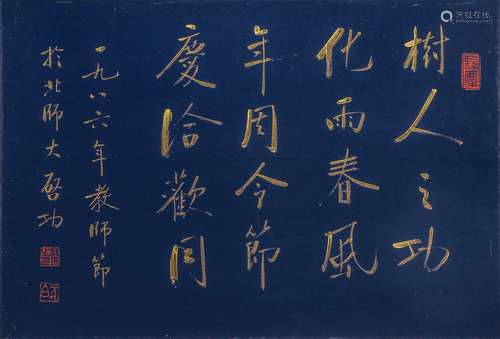 樹人之功
化雨春風
年周今節
慶洽歡同
一九八六年教師節
於北師大啓功